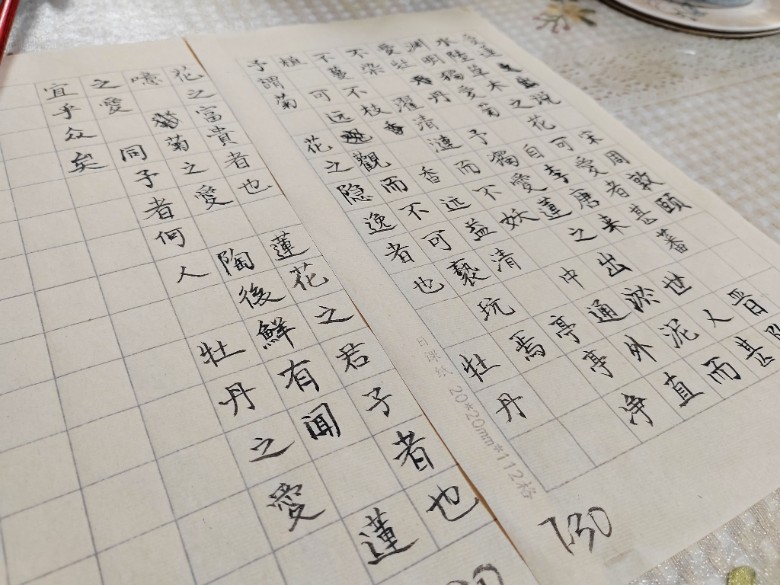 爱蓮说 宋周敦頤
水陸草木之花可愛者甚蕃晋陶
渊明獨愛菊自李唐来世人甚
愛牡丹予獨愛蓮之出淤泥而
不染濯清漣而不妖中通外直
不蔓不枝香远益清亭亭净
植可远觀而不可亵玩焉
予謂菊花之隐逸者也牡丹
日课纸 20*20mm*112格
130
花之富貴者也蓮花之君子者也
噫菊之愛陶後鮮有聞蓮
之愛同予者何人牡丹之愛
宜乎众矣